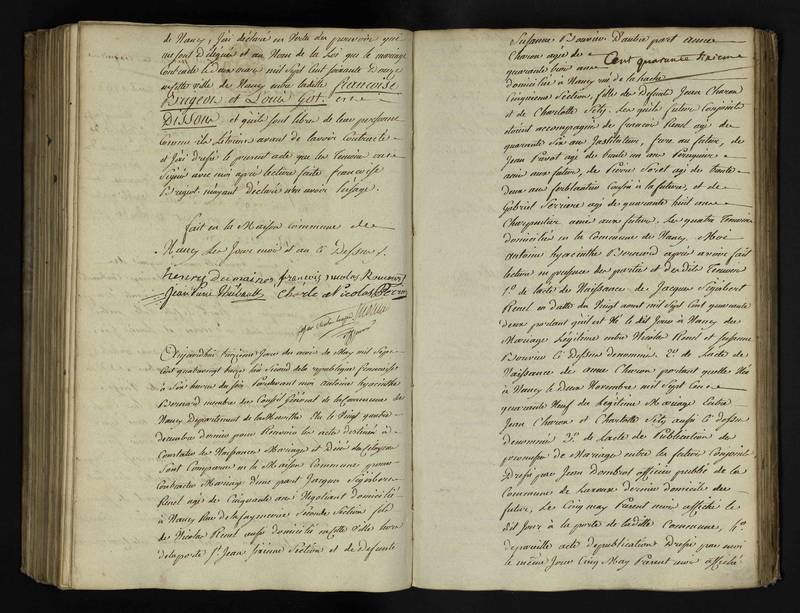 de Nancy, j'ai déclaré en vertu des pouvoirs qui
me sont délégués et au Nom de la Loi que le mariage
Contracté le deux mars mil Sept Cent soixante douze
en cette ville de Nancy entre laditte francoise
Brugeon et Louis Got. est
Dissou et qu'ils sont libre de leur personne
comme ils l'étoient avant de l'avoir Contracté
et j'ai dressé le present acte que les Temoins ont
Signé avec moi après lecture faite francoise
ayant déclaré n'en avoir l'usage.
fait en la Maison commune de
Nancy Les Jour mois et an Ci Dessus.
françois nicolas
Jean Pierre Thiebault Charle et Nicolas
Aujourdhui treizième Jour du mois de May mil Sept
cent quatrevingt treize l'an Second de la republique francaise
à Six heures du soir Pardevant moi antoine hyacinthe
Bernard membre du Conseil Général de la Commune de
Nancy Département de la Meurthe Elu le Vingt quatre
decembre dernier pour Recevoir les actes destinés à
Constater les Naissances Mariages et Décès des Citoyens
Sont Comparus en la Maison Commune pour
Contracter Mariage d'une part Jacques Sigisbert
Renel agé de Cinquante ans Negotiant domicilié
à Nancy Rue de la fayencerie Seconde Section fils
de Nicolas Renel aussi domicilié en cette Ville hors
de la porte St Jean Section et de defunte
Susanne Bouvier D'autre part anne
Charon agée de
quarante trois ans Cent quarante
domiciliée à Nancy rue de la hache
Cinquieme Section, fille de Defunts Jean Charon
et de Charlotte Lesquels futurs Conjoints
étoient accompagnés de francois Renel agé de
quarante Six ans Instituteur, frere au futur, de
Jean agé de trente un ans Peruquier
amis aux futurs, de Pierre agé de trente
deux ans ferblantier Cousin à la future, et de
Gabriel agé de quarante huit ans
Charpentier ami aux futurs. Les quatre Temoins
domiciliés en la Commune de Nancy, Moi
antoine hyacinthe Bernard après avoir fait
lecture en presence des parties et desdits Temoins
1.° de l'acte de Naissance de Jacques Sigisbert
Renel en datte du Vingt aout mil Sept cent quarante
deux portant qu'il est Né le dit Jour à Nancy du
Mariage Légitime entre Nicolas Renel et Susanne
Bouvier Ci dessus denommés. 2.° de L'acte de
Naissance de anne Charon portant quelle est Née
à Nancy le Deux Novembre mil Sept Cent
quarante Neuf du Légitime Mariage Entre
Jean Charon et Charlotte aussi Ci dessus
denommés 3.° de L'acte de Publication de
promesse de Mariage entre les futurs Conjoints
Dressé par Jean Dombrot officier public de la
Commune de dernier domicile du
futur, Le Cinq may Present mois affiché le
dit Jour à la porte de laditte Commune, 4.°
de pareille acte de publication Dressé par moi
le même Jour Cinq May Present mois affiché